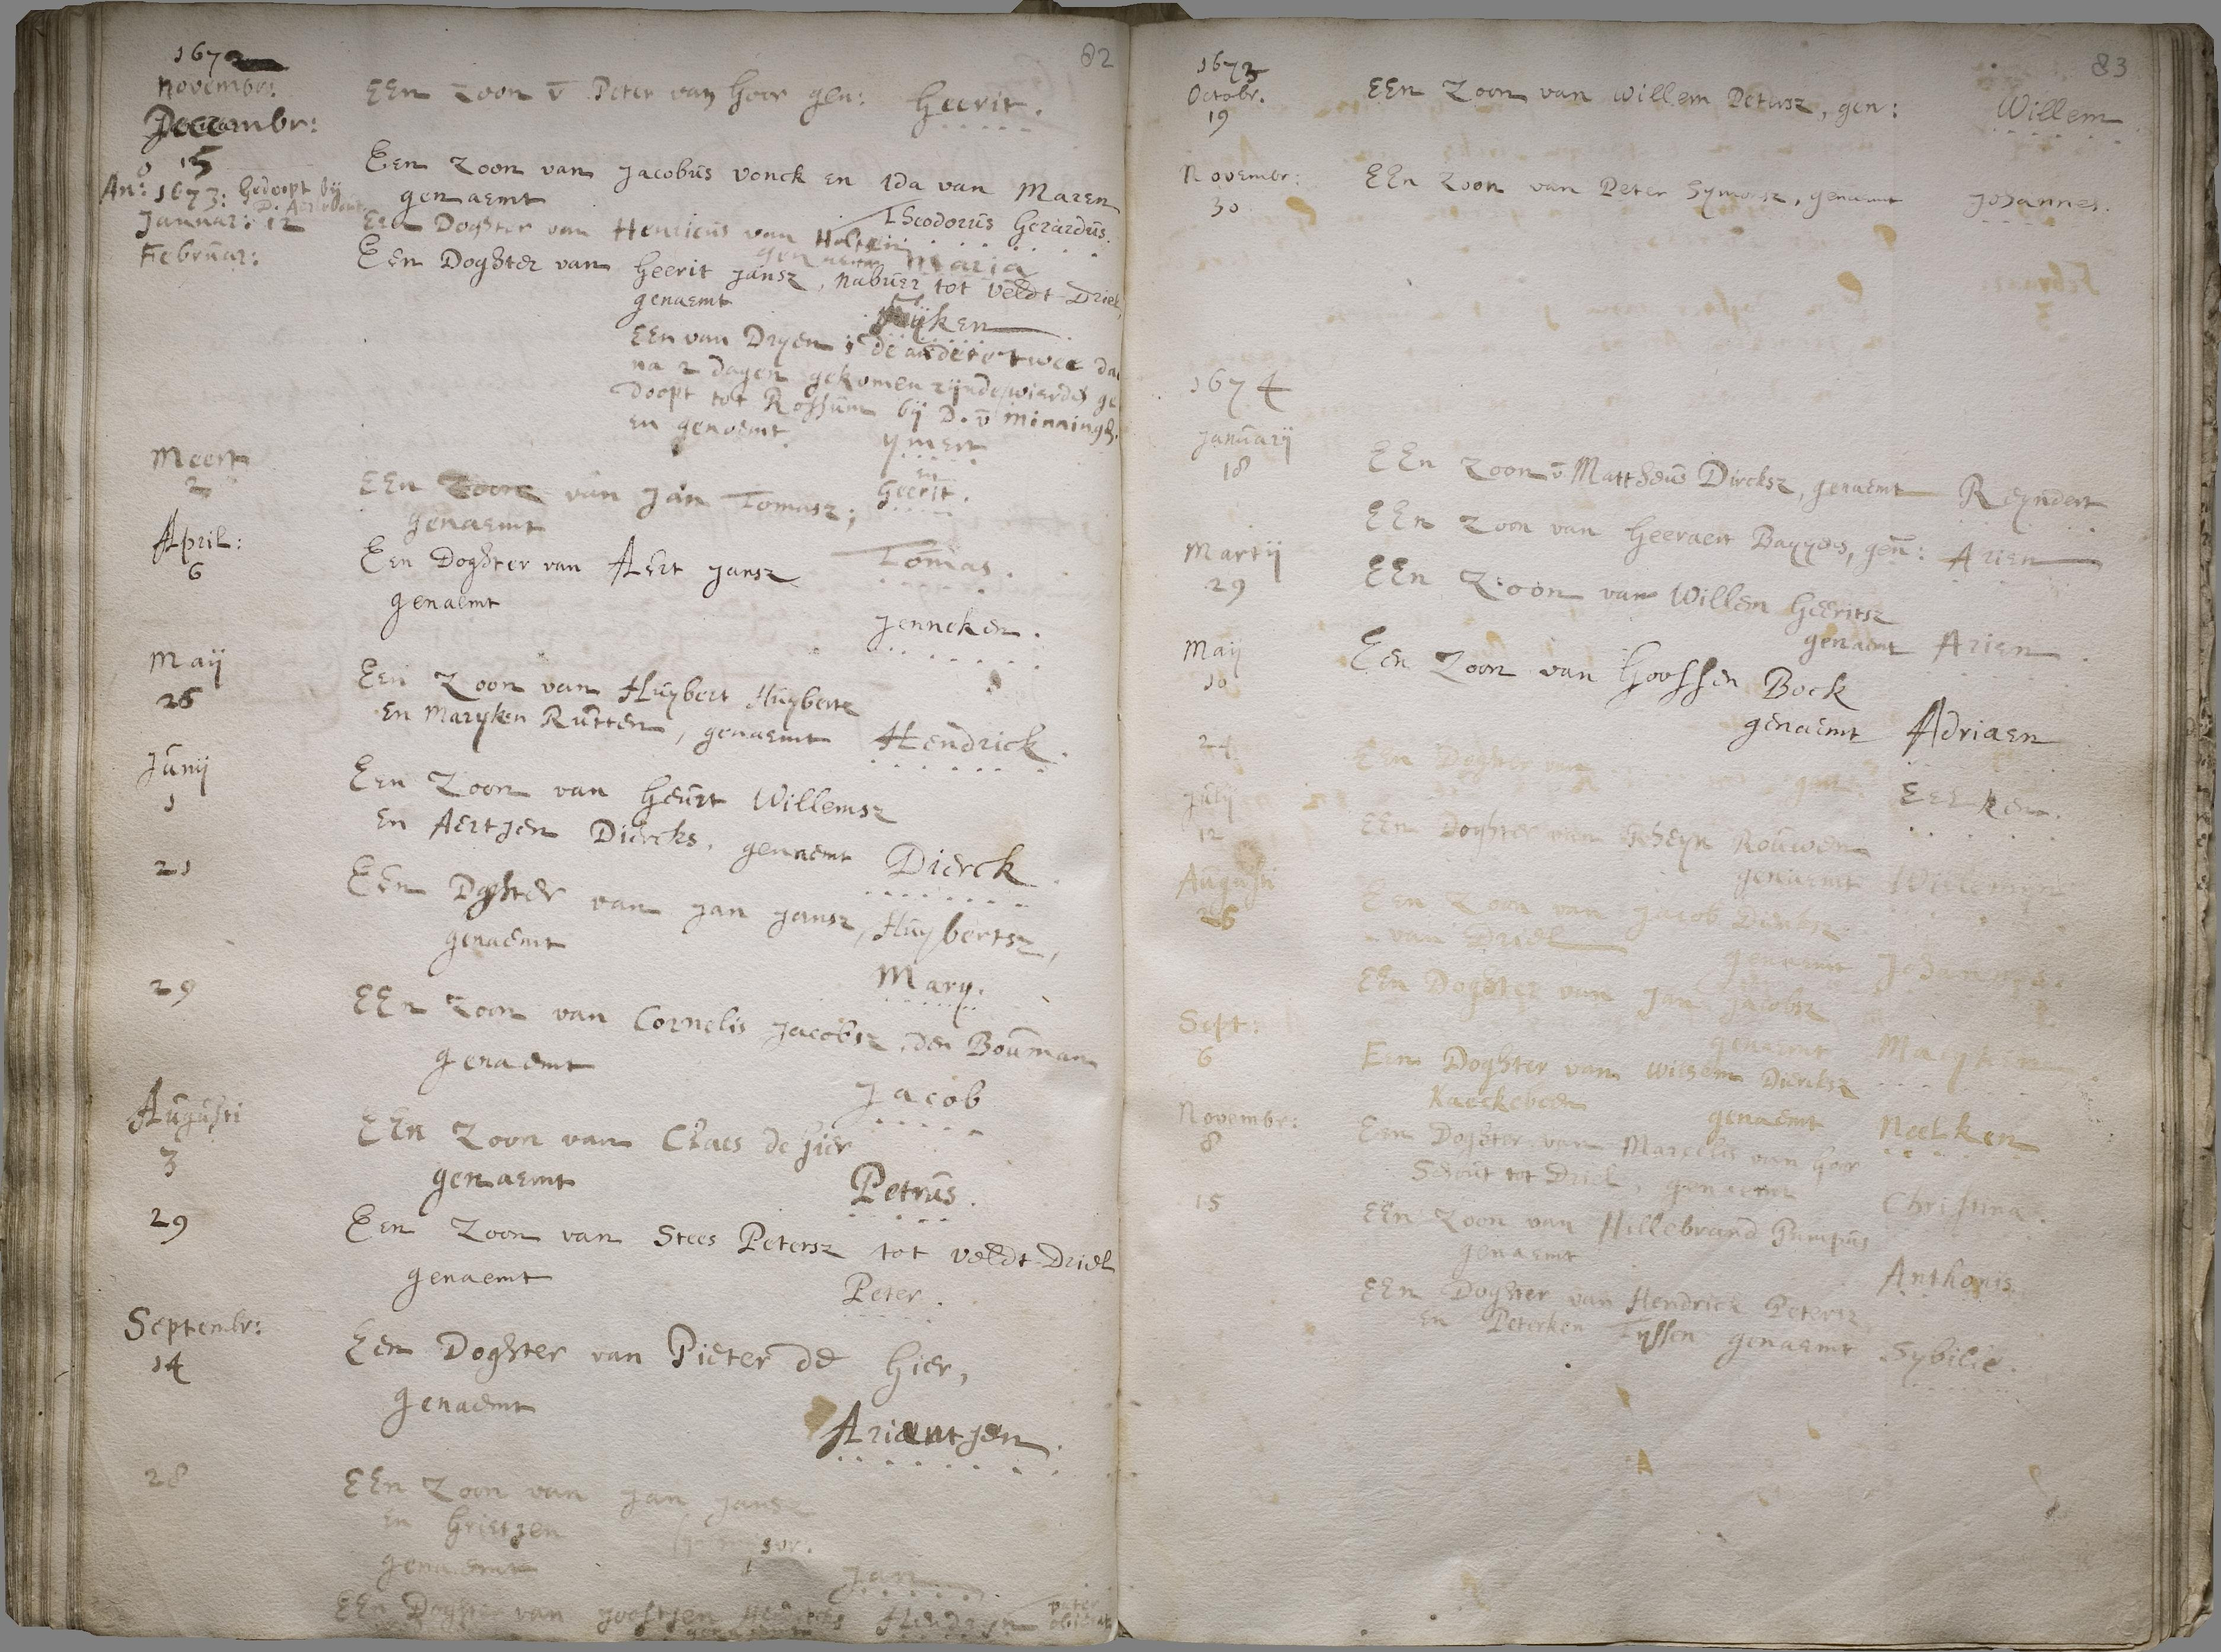 82
1672
Novembr:
EEn zoon v̄ Peter van Goor gen: Geerit.
Decembr:
15
Een zoon van Jacobus Vonck en Ida van Maren
genaemt
Theodorus Gerardus.
An: 1673: Gedoopt bij
Januar: 12
Een Doghter van Henricus van Holten
genaemt Maria
Februar:
Een Doghter van Geerit Jansz, nabuer tot Veldt-Driel,
genaemt
ijken
EEn van Dryen; de andere twee da
na 2 dagen gekomen zijnde, wierdes ge
doopt tot Rossum bij D. v̄ Minningh,
en genoemt.
ymert
en
Geerit.
Meert
2
EEn zoon van Jan Tomasz,
genaemt
Tomas.
April:
6
Een Doghter van Aert Jansz
genaemt
Jenneken.
Maij
26
Een Zoon van Huybert Huyberts
en Maryken Rutten, genaemt Hendrick.
Junij
1
Een Zoon van Geurt Willemsz
en Aertjen Diercks, genaemt Dierck.
21
Een Doghter van Jan Jansz, Huybertsz,
genaemt
Mary.
29
EEn zoon van Cornelis Jacobsz, den Bouman
genaemt
Jacob
Augusti
3
EEn Zoon van Claes de Gier
genaemt
Petrus.
29
Een Zoon van Stees Petersz tot Veldt-Driel
genaemt
Peter.
Septembr:
14
Een Doghter van Pieter de Gier,
genaemt
Ariaentjen.
28
EEn Zoon van Jan Jansz
en Grietjen
genaemt
Jan
EEn Doghter van Joostjen Hendricks Hendryn pater
83
1673
Octobr.
19
EEn Zoon van Willem Petersz, gen: Willem
Novembr:
30
EEn Zoon van Peter Symonsz, genaemt Johannes.
1674
Januarij
18
EEn Zoon v̄ Mattheus Dircksz, genaemt Reyndert
EEn Zoon van Geeraert Bayyens, gen: Arien
Martij
29
EEn Zoon van Willem Geeritsz
genaemt Arien.
Maij
10
Een Zoon van Goossen Bock
genaemt Adriaen
24.
Een Doghter van
Eelken.
July
12
EEn Doghter van Gheyn Rouwen
genaemt Willemijn
Augusti
26
Een Zoon van Jacob Dircksz
van Driel
genaemt Johannes.
EEn Doghter van Jan Jacobsz
genaemt Maryken
Sept:
6
Een Doghter van Willem Diercksz
Kaeckebeen genaemt Neelken
Novembr:
8
Een Doghter van Marcelis van Goor
Schout tot Driel, genaemt Christina.
15
EEn Zoon van Hillebrand Pumpus
genaemt
Anthonis
EEn Doghter van Hendrick Petersz
en Peterken Tyssen genaemt Sybilie.